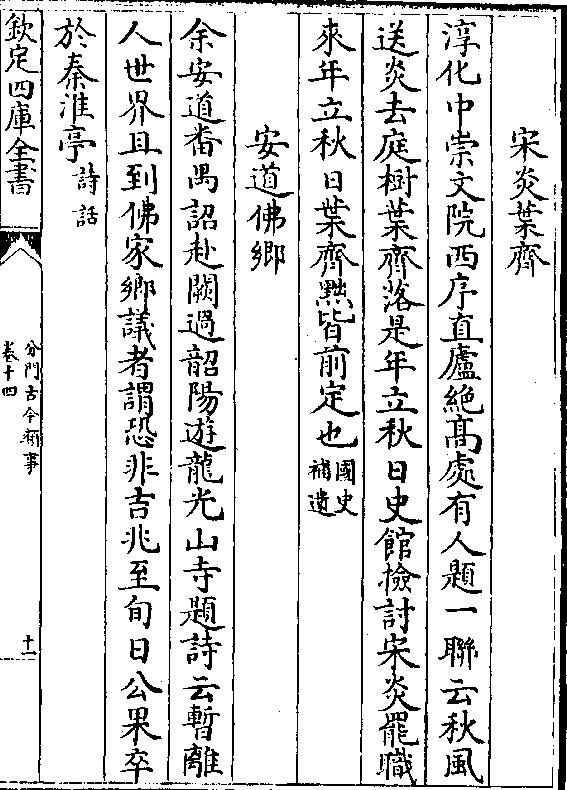 宋炎葉齊
淳化中崇文院西序直廬絶髙處有人題一聯云秋風
送炎去庭樹葉齊落是年立秋日史館檢討宋炎罷職
來年立秋日葉齊黜皆前定也國史補遺
安道佛鄉
余安道番禺詔赴闕過韶陽遊龍光山寺題詩云暫離
人世界且到佛家鄉議者謂恐非吉兆至旬日公果卒
於秦淮亭詩話
欽定四庫全書
分門古今類事
卷十四
十一